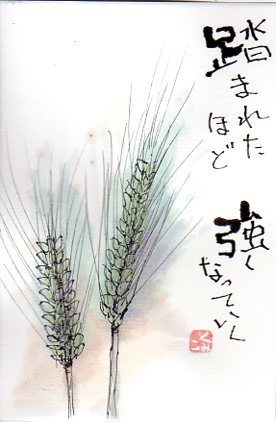 踏まれた
ほど
強く
なっていく
くみこ